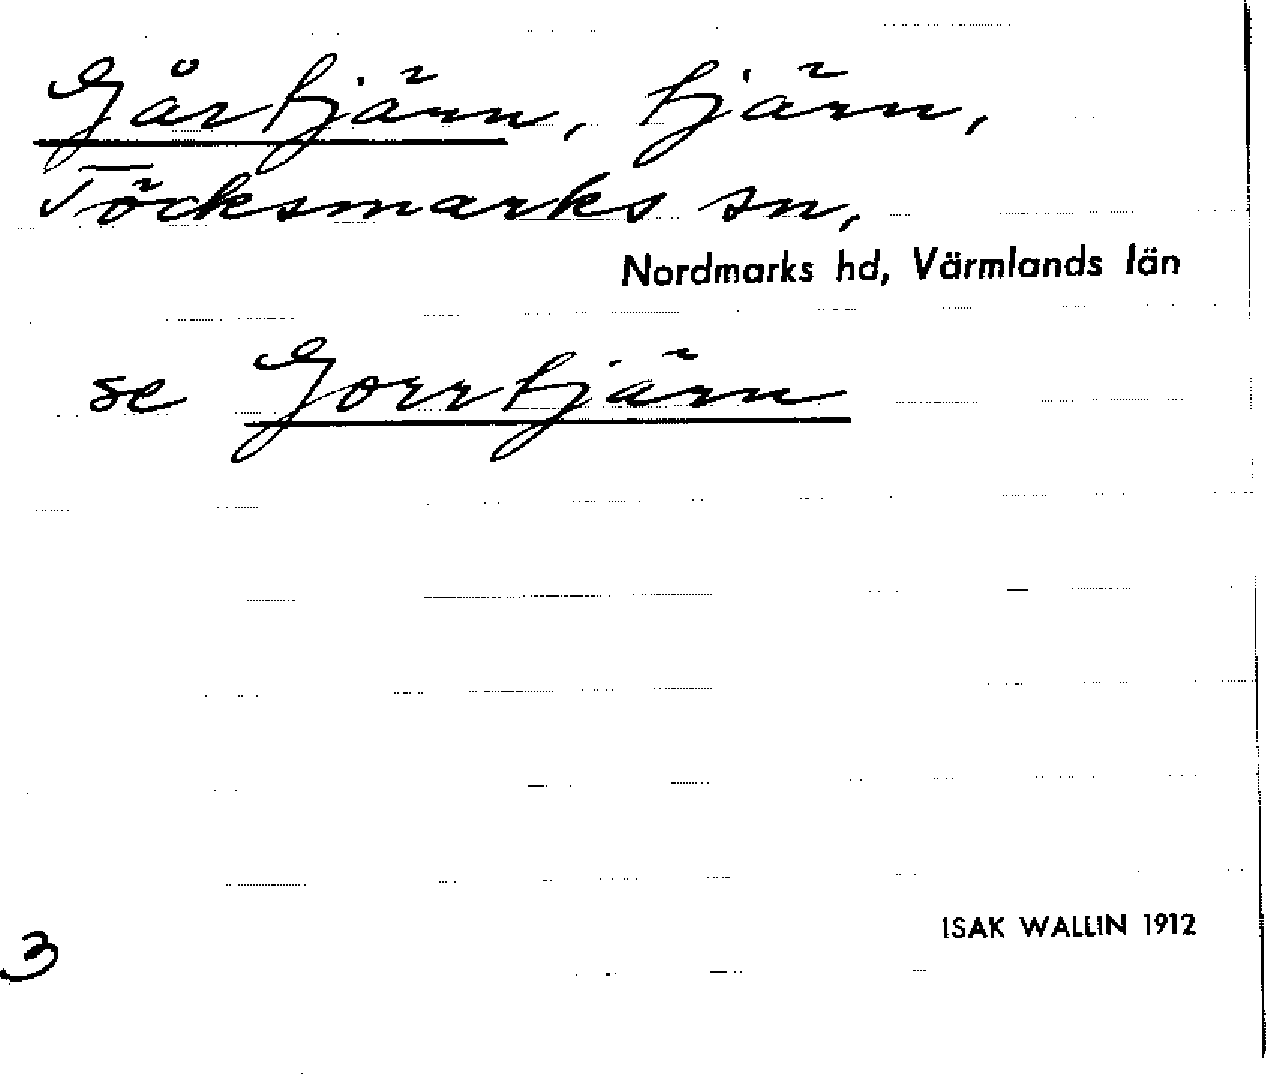 Gårtjärn, tjärn,
Töcksmarks sn,
Nordmarks hd, Värmlands län
se Gorrtjärn
ISAK WALLIN 1912
3